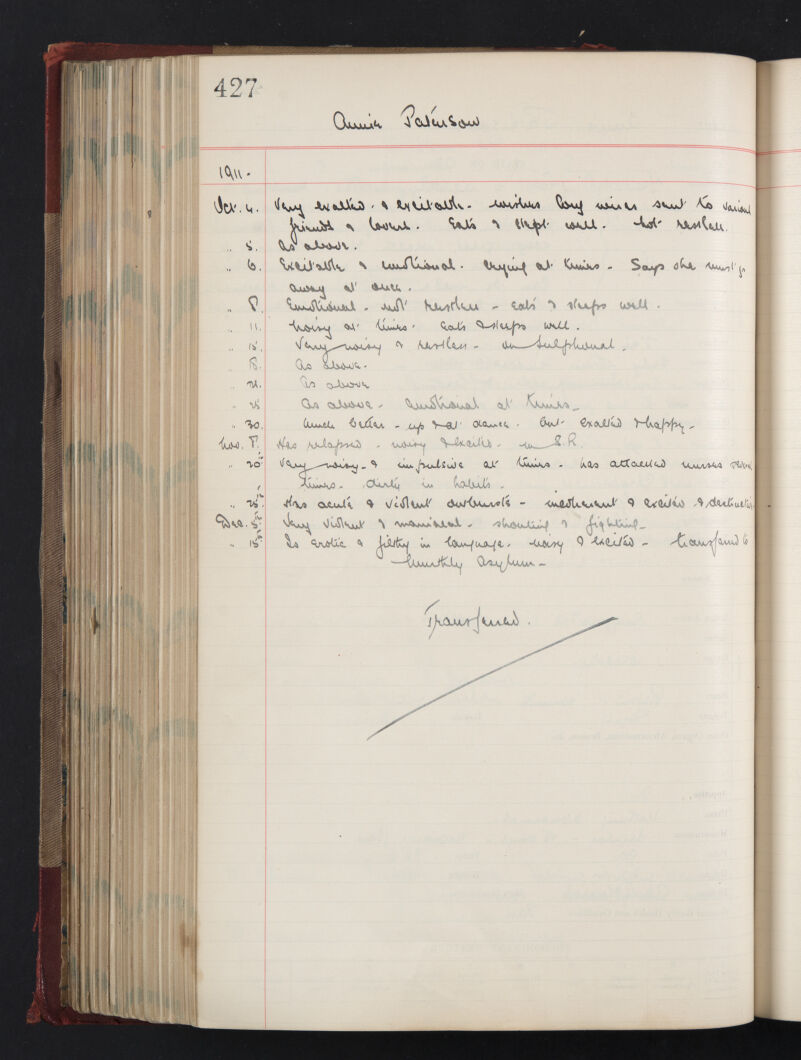 427
Annie Paterson
1911.
Oct. 4. Very exalted & excitable. wishes long wires sent to various
friends & lovers. Eats & slept well. Not restless.
" 5. As above.
" 6. Excitable & emotional. crying at times - Says she must go
away at once.
" 8. Emotional - not restless - Eats & sleeps well.
" 11. Noisy at times. Eats & sleeps well.
" 15. Very noisy & restless - on Sulphonal.
" 18. As above.
" 21. As above
" 25 As above - Emotional at times -
" 30. Much better - up & at dance. but exalted & happy -
Nov. 8. Has relapsed - noisy & excited - in S.R.
" 20th Very noisy - & impulsive at times - has attacked nurses several
times - dirty in habits.
" 25th Has acute & violent outbursts - incoherent & excited & destructive
Dec. 5th Very violent & maniacal - shouting & fighting -
" 15th Is erotic & filthy in language - noisy & excited - transferred to
Murthly Asylum -
Transferred.